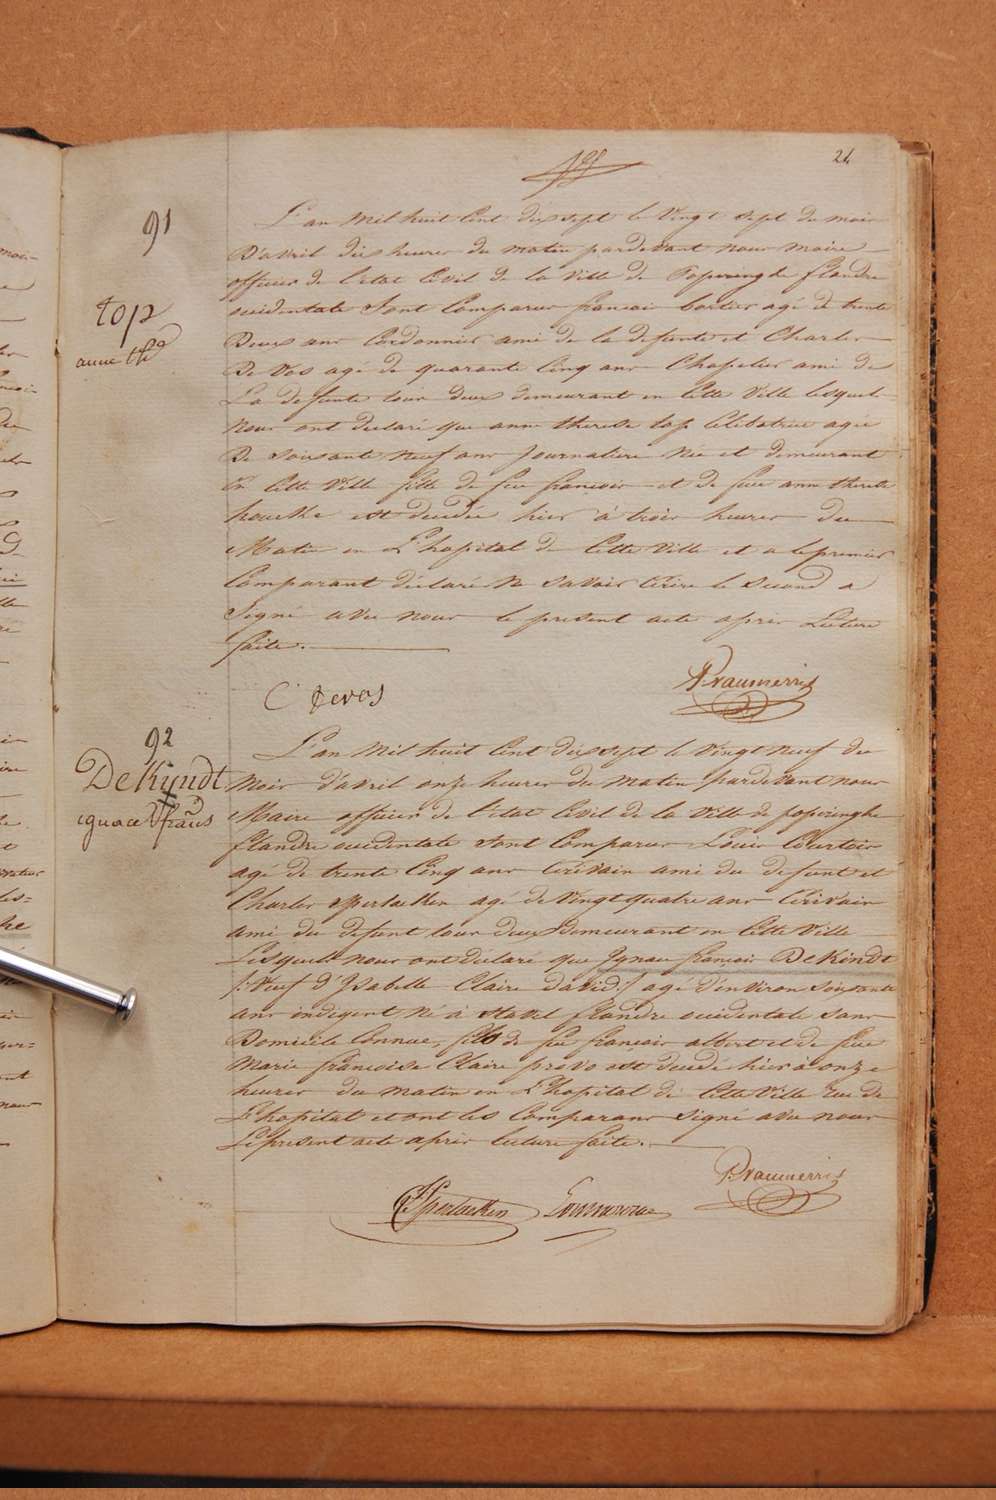 24
91
top
anne thé
L'an mil huit cent dix sept le vingt sept du mois
D'avril dix heures du matin pardevant nous maire
officier de l'etat Civil de la ville de Poperinghe flandre
occidentale Sont Comparus françois Cartier agé de trente
Deux ans Cordonnier ami de la defunte et Charles
De Vos agé de quarante Cinq ans Chapelier ami de
La defunte tous deux demeurant en Cette Ville lesquels
Nous ont declaré que anne therese top Celibatrice agée
De soixante neuf ans Journaliere Née et demeurant
En Cette Ville fille de feu françois et de feue anne therese
est decedée hier à trois heures du
Matin en L'hopital de Cette Ville et a le premier
Comparant déclaré Ne Savoir Ecrire le Second a
Signé avec nous le present acte après Lecture
faite.
C Devos
92
DeKijndt
ignace frans
L'an Mil huit Cent dix sept le Vingt Neuf du
Mois d'avril onze heures du matin pardevant nous
Maire officier de l'etat Civil de la ville de poperinghe
flandre occidentale Sont Comparus Louis Courtois
agé de trente Cinq ans Ecrivain ami du defunt et
Charles agé de Vingt quatre ans Ecrivain
ami du defunt tous deux Demeurant en Cette Ville
Lesquels nous ont declaré que Ignace françois DeKindt
/: Veuf d'Isabelle Claire david :/ agé d'environ Soixante
ans indigent Né à Stavel flandre occidentale sans
Domicile Connue, fils de feu françois albert et de feue
Marie françoise Claire prévo est decedé hier à onze
heures du matin en L'hopital de Cette Ville rue de
L'hopital et ont les Comparans Signé avec nous
Le present acte après lecture faite.